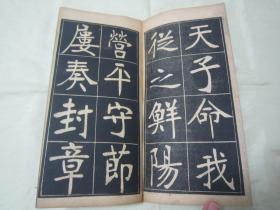 天子命我
從之鮮陽
營平守節
屢奏封章